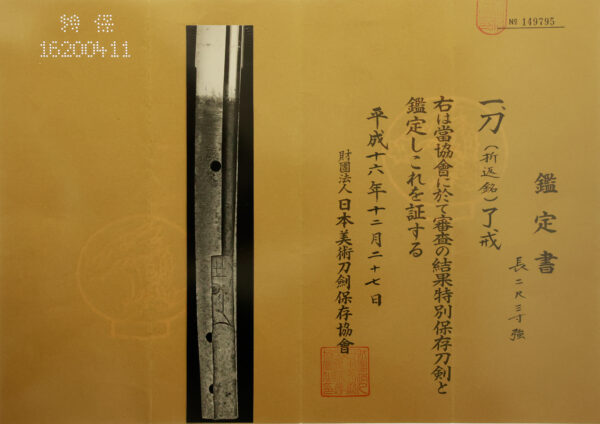 特保
16200411
№ 149795
鑑定書
長二尺三寸強
一、刀（折返銘）了戒
右は當協會に於て審査の結果特別保存刀剣と
鑑定しこれを証する
平成十六年十二月二十七日
財團法人日本美術刀劍保存協會